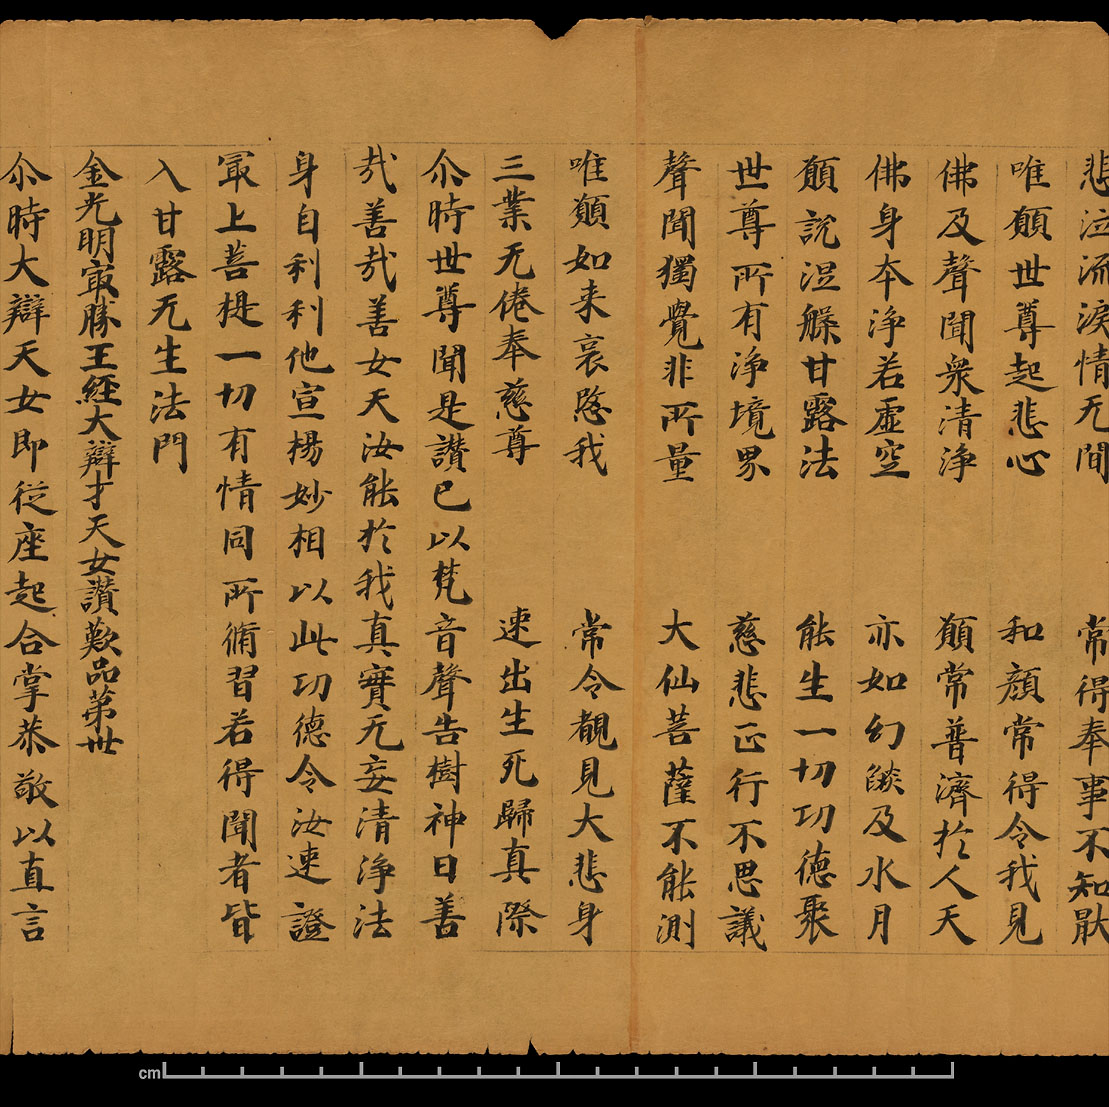 悲泣流淚情无間　常得奉事不知猒
唯願世尊起悲心　和顔常得令我見
佛及聲聞衆清淨　願常普濟於人天
佛身本淨若虛空　亦如幻㷿及水月
願說涅槃甘露法　能生一切功德聚
世尊所有淨境界　慈悲正行不思議
聲聞獨覺非所量　大仙菩薩不能測
唯願如来哀愍我　常令覩見大悲身
三業无倦奉慈尊　速出生死歸真際
尒時世尊聞是讃已以梵音聲告樹神曰善
㢤善㢤善女天汝能於我真實无妄清淨法
身自利利他宣揚妙相以此功德令汝速證
冣上菩提一切有情同所脩習若得聞者皆
入甘露无生法門
金光明冣勝王經大辯才天女讃歎品第卅
尒時大辯天女即從座起合掌恭敬以直言
cm